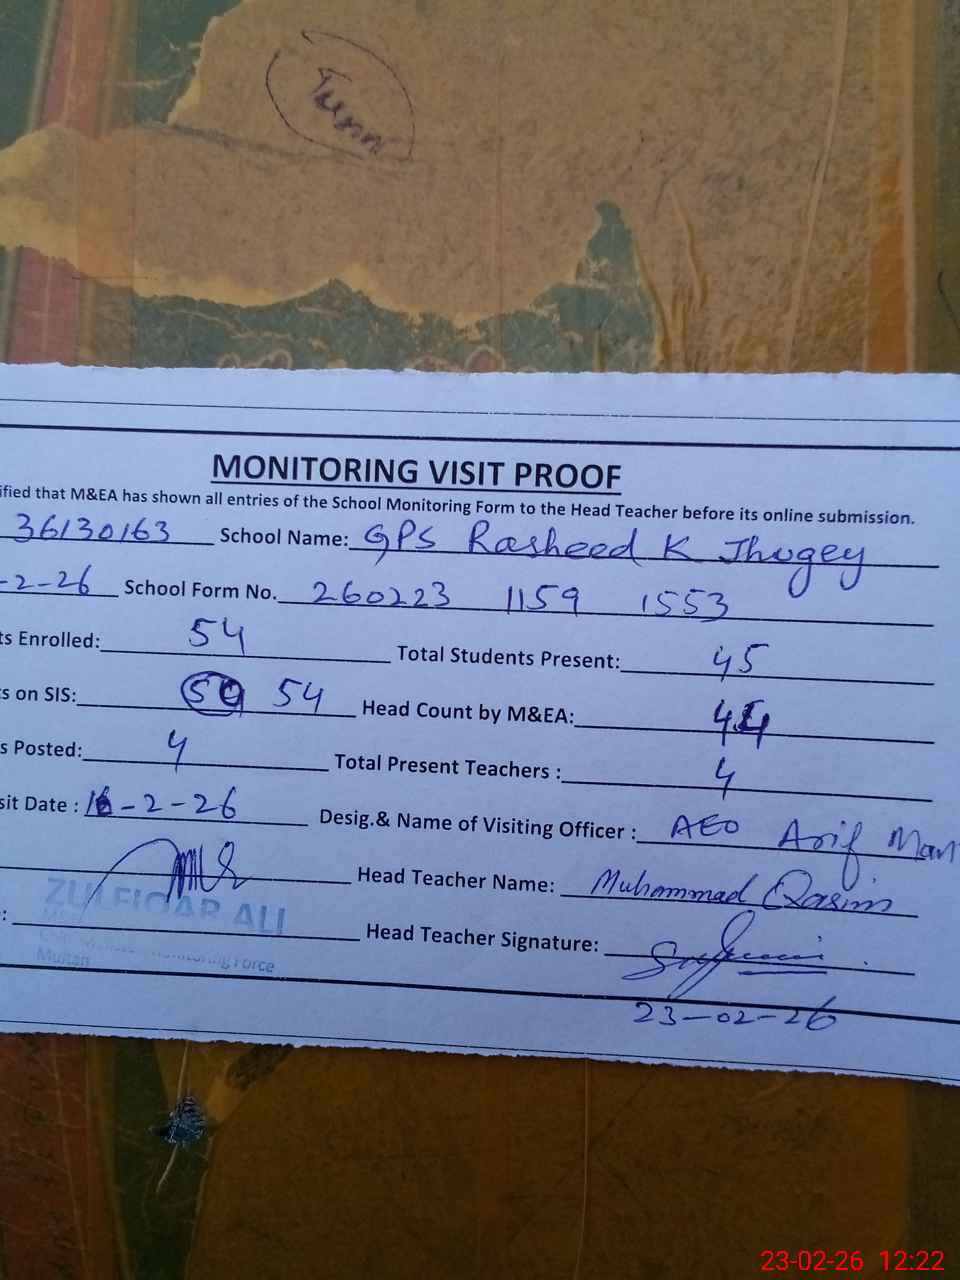 MONITORING VISIT PROOF
ified that M&EA has shown all entries of the School Monitoring Form to the Head Teacher before its online submission.
36130163 School Name: GPS Rasheed K Jhugey
-2-26 School Form No. 260223 1159 1553
ts Enrolled: 54 Total Students Present: 45
s on SIS: 50 54 Head Count by M&EA: 44
s Posted: 4 Total Present Teachers : 4
sit Date : 16-2-26 Desig.& Name of Visiting Officer : AEO Arif Man
Head Teacher Name: Muhammad Qasim
ZULFIQAR ALI
: Head Teacher Signature:
Monitoring Force
Multan
23-02-26
23-02-26 12:22